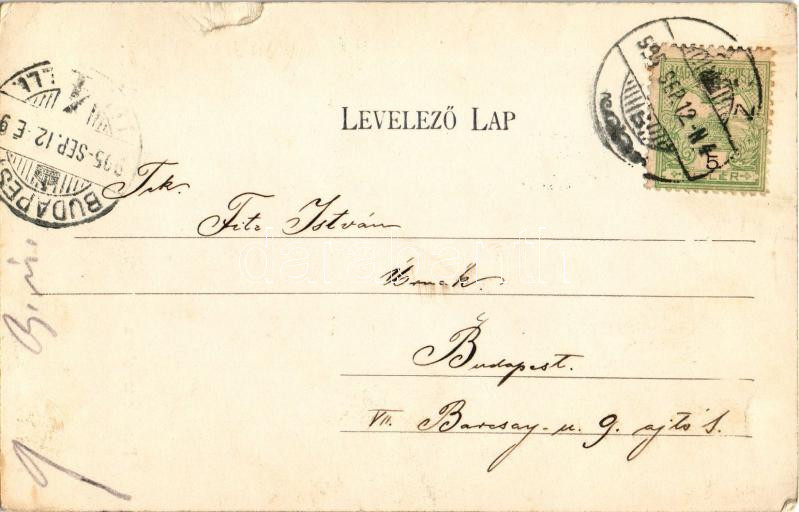 LEVELEZŐ LAP
905 SEP. 12. N 4
5
905-SEP.12. É 9
BUDAPES
Tek.
Fitz István
Úrnak.
Budapest.
VII. Barcsay-u. 9. ajtó 1.